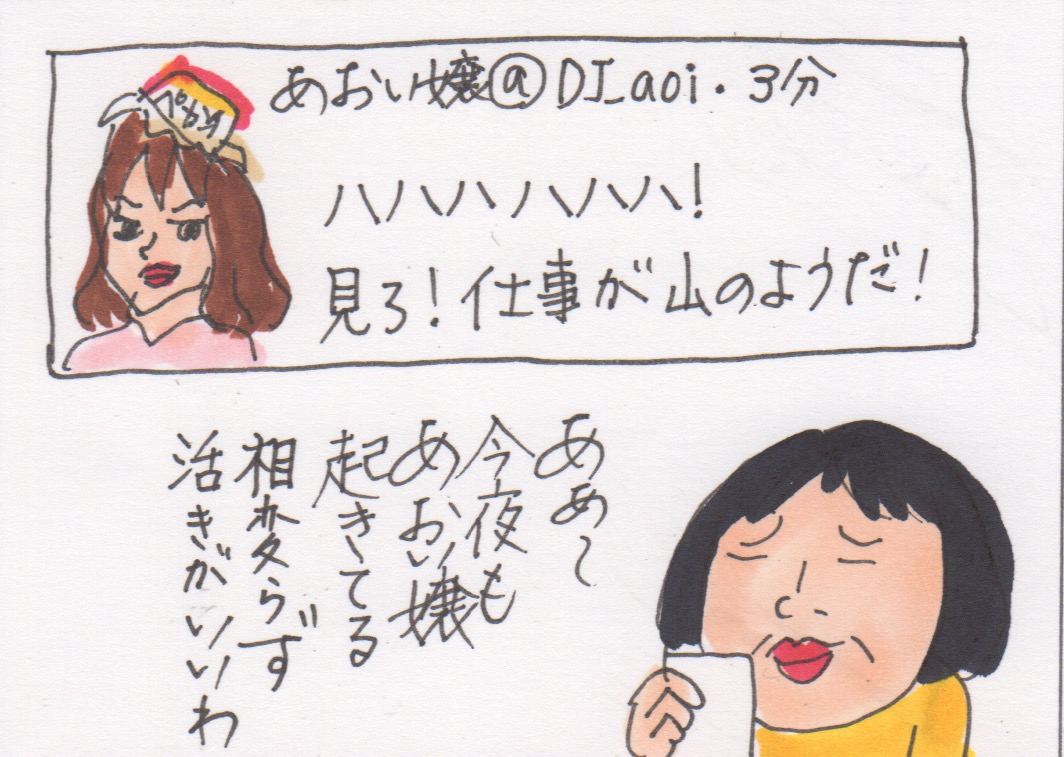 あおい嬢@DJ_aoi・3分
ハハハハハハハ!
見ろ!仕事が山のようだ!
ああ〜
今夜も
あおい嬢
起きてる
相変らず
活きがいいわ